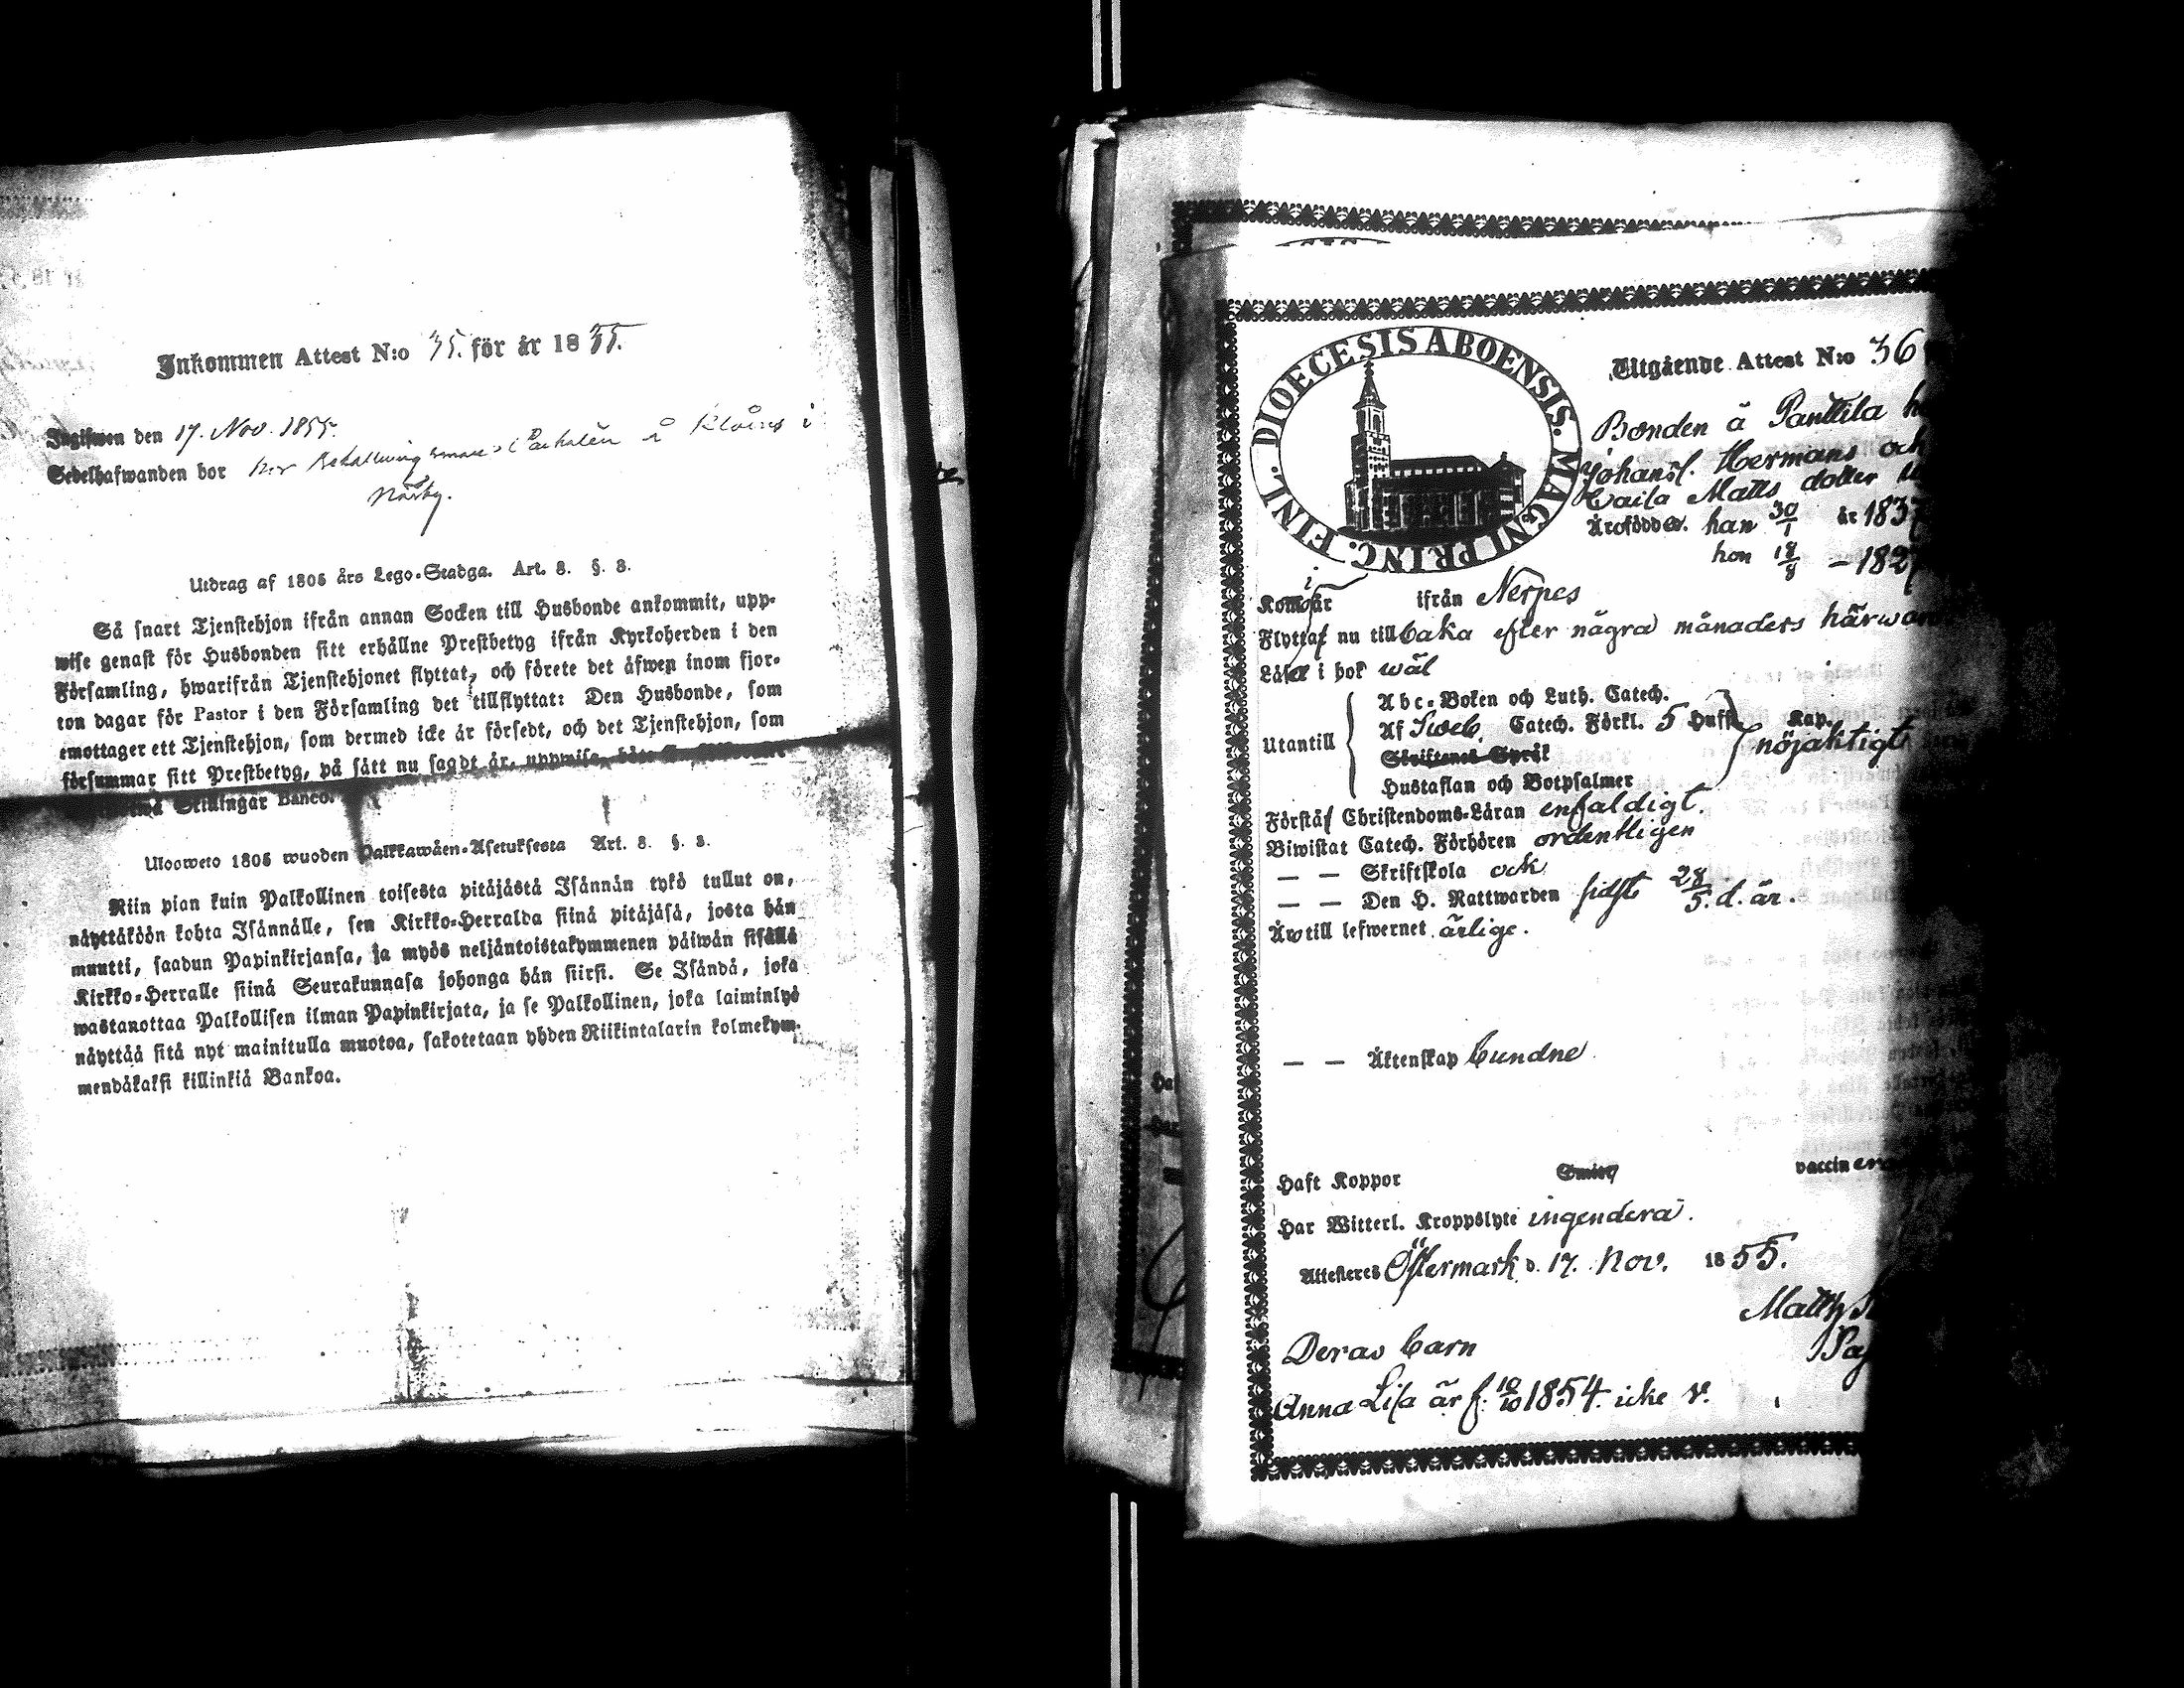 Inkommen Attest N:o 35. för år 1855.
Ingifwen den 17. Nov. 1855.
Sedelhafwanden bor hos å i
Närby.
Utdrag af 1805 års Lego-Stadga. Art. 8. §. 3.
Så snart Tjenstehjon ifrån annan Socken till Husbonde ankommit, upp-
wise genast för Husbonden sitt erhållne Prestbetyg ifrån Kyrkoherden i den
Församling, hwarifrån Tjenstehjonet flyttat, och förete det äfwen inom fjor-
ton dagar för Pastor i den Församling det tillflyttat: Den Husbonde, som
emottager ett Tjenstehjon, som dermed icke är försedt, och det Tjenstehjon, som
försummar sitt Prestbetyg, på sätt nu sagdt är, uppwisa,
Skillingar Banco.
Ulosweto 1805 wuoden Palkkawäen-Asetuksesta Art. 8. §. 3.
Niin pian kuin Palkollinen toisesta pitäjästä Isännän tykö tullut on,
näyttäköön kohta Isännälle, sen Kirkko-Herralda siinä pitäjäsä, josta hän
muutti, saadun Papinkirjansa, ja myös neljäntoistakymmenen päiwän sisällä
Kirkko-Herralle siinä Seurakunnasa johonga hän siirsi. Se Isändä, joka
wastanottaa Palkollisen ilman Papinkirjata, ja se Palkollinen, joka laiminlyö
näyttää sitä nyt mainitulla muotoa, sakotetaan yhden Riikintalarin kolmekym-
mendäkaksi killinkiä Bankoa.
DIOECESIS ABOENSIS. MAGNI PRINC. FINL.
Utgående Attest N:o 36
Bonden å Panttila
Johansf. Hermans och
Caisa Matts dotter
Äro född e. han 30/1 år 183
hon 18/8 – 182
Kom år ifrån Nerpes
Flytta nu tillbaka efter några månaders härwaro
Läsa i bok wäl
Abc-Boken och Luth. Catech.
Af Sweb. Catech. Förkl. 5 Hufst. Kap.
Utantill nöjaktigt
Skriftenes Språk
Hustaflan och Botpsalmer
Förstå Christendoms-Läran enfaldigt.
Biwistat Catech. Förhören ordentligen
— — Skriftskola ock
— — Den H. Nattwarden sidst 28/5. d. år.
Äro till lefwernet ärlige.
— — Äktenskap bundne
Haft Koppor Smitt vaccin
Har Witterl. Kroppslyte ingendera.
Attesteres Östermark d. 17. Nov. 1855.
Matth
Deras barn
Anna Lisa är f. 10/10 1854. icke v.